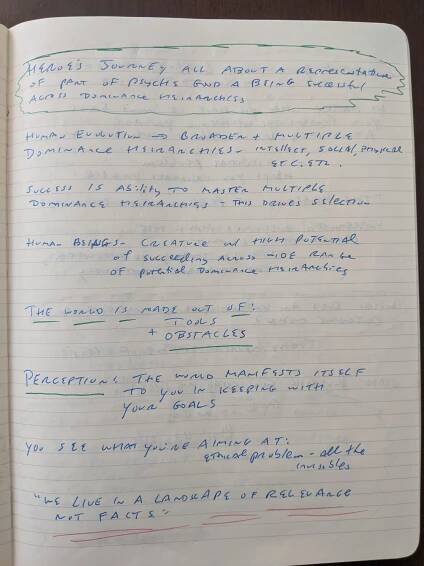 HEROE'S JOURNEY ALL ABOUT A REPRESENTATION
OF PART OF PSYCHE AND A BEING SUCCESSFUL
ACROSS DOMINANCE HEIRARCHIES
HUMAN EVOLUTION → BROADEN + MULTIPLE
DOMINANCE HEIRARCHIES - INTELLECT, SOCIAL, PHYSICAL
ETC. ETC.
SUCCESS IS ABILITY TO MASTER MULTIPLE
DOMINANCE HEIRARCHIES - THIS DRIVES SELECTION
HUMAN BEINGS - CREATURE W/ HIGH POTENTIAL
OF SUCCEEDING ACROSS WIDE RANGE
OF POTENTIAL DOMINANCE HEIRARCHIES
THE WORLD IS MADE OUT OF:
TOOLS
+ OBSTACLES
PERCEPTION: THE WORLD MANIFESTS ITSELF
TO YOU IN KEEPING WITH
YOUR GOALS
YOU SEE WHAT YOU'RE AIMING AT:
ethical problem - all the
invisibles
"WE LIVE IN A LANDSCAPE OF RELEVANCE
NOT FACTS"